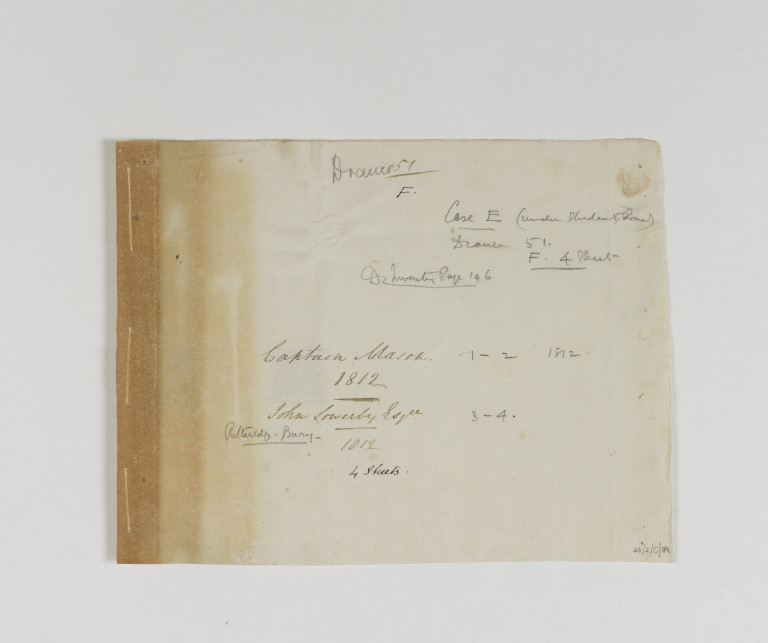 Drawer 51
F.
Case E (under Student's Room)
Drawer 51.
F. 4 Sheets
Inventory Page 146
Captain Mason. 1 - 2 1812
1812
John Sowerby Esqre 3 - 4.
Putteridge - Bury -
1812.
4 Sheets.